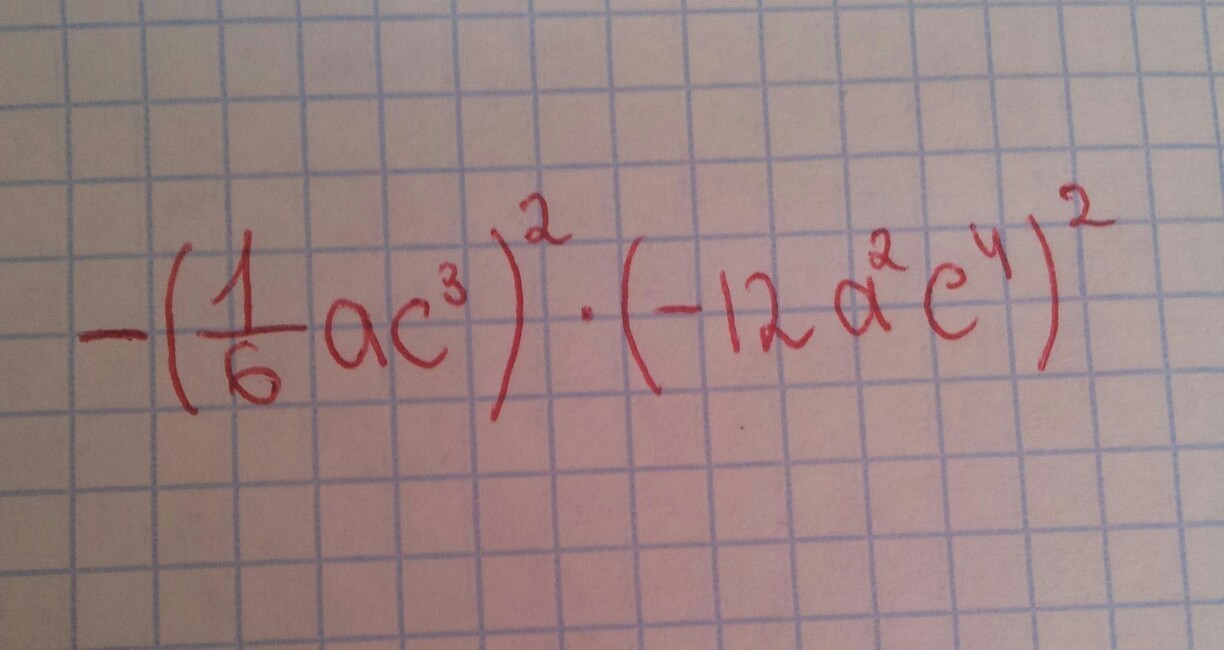 $-\left(\frac{1}{6}ac^3\right)^2 \cdot \left(-12a^2c^4\right)^2$